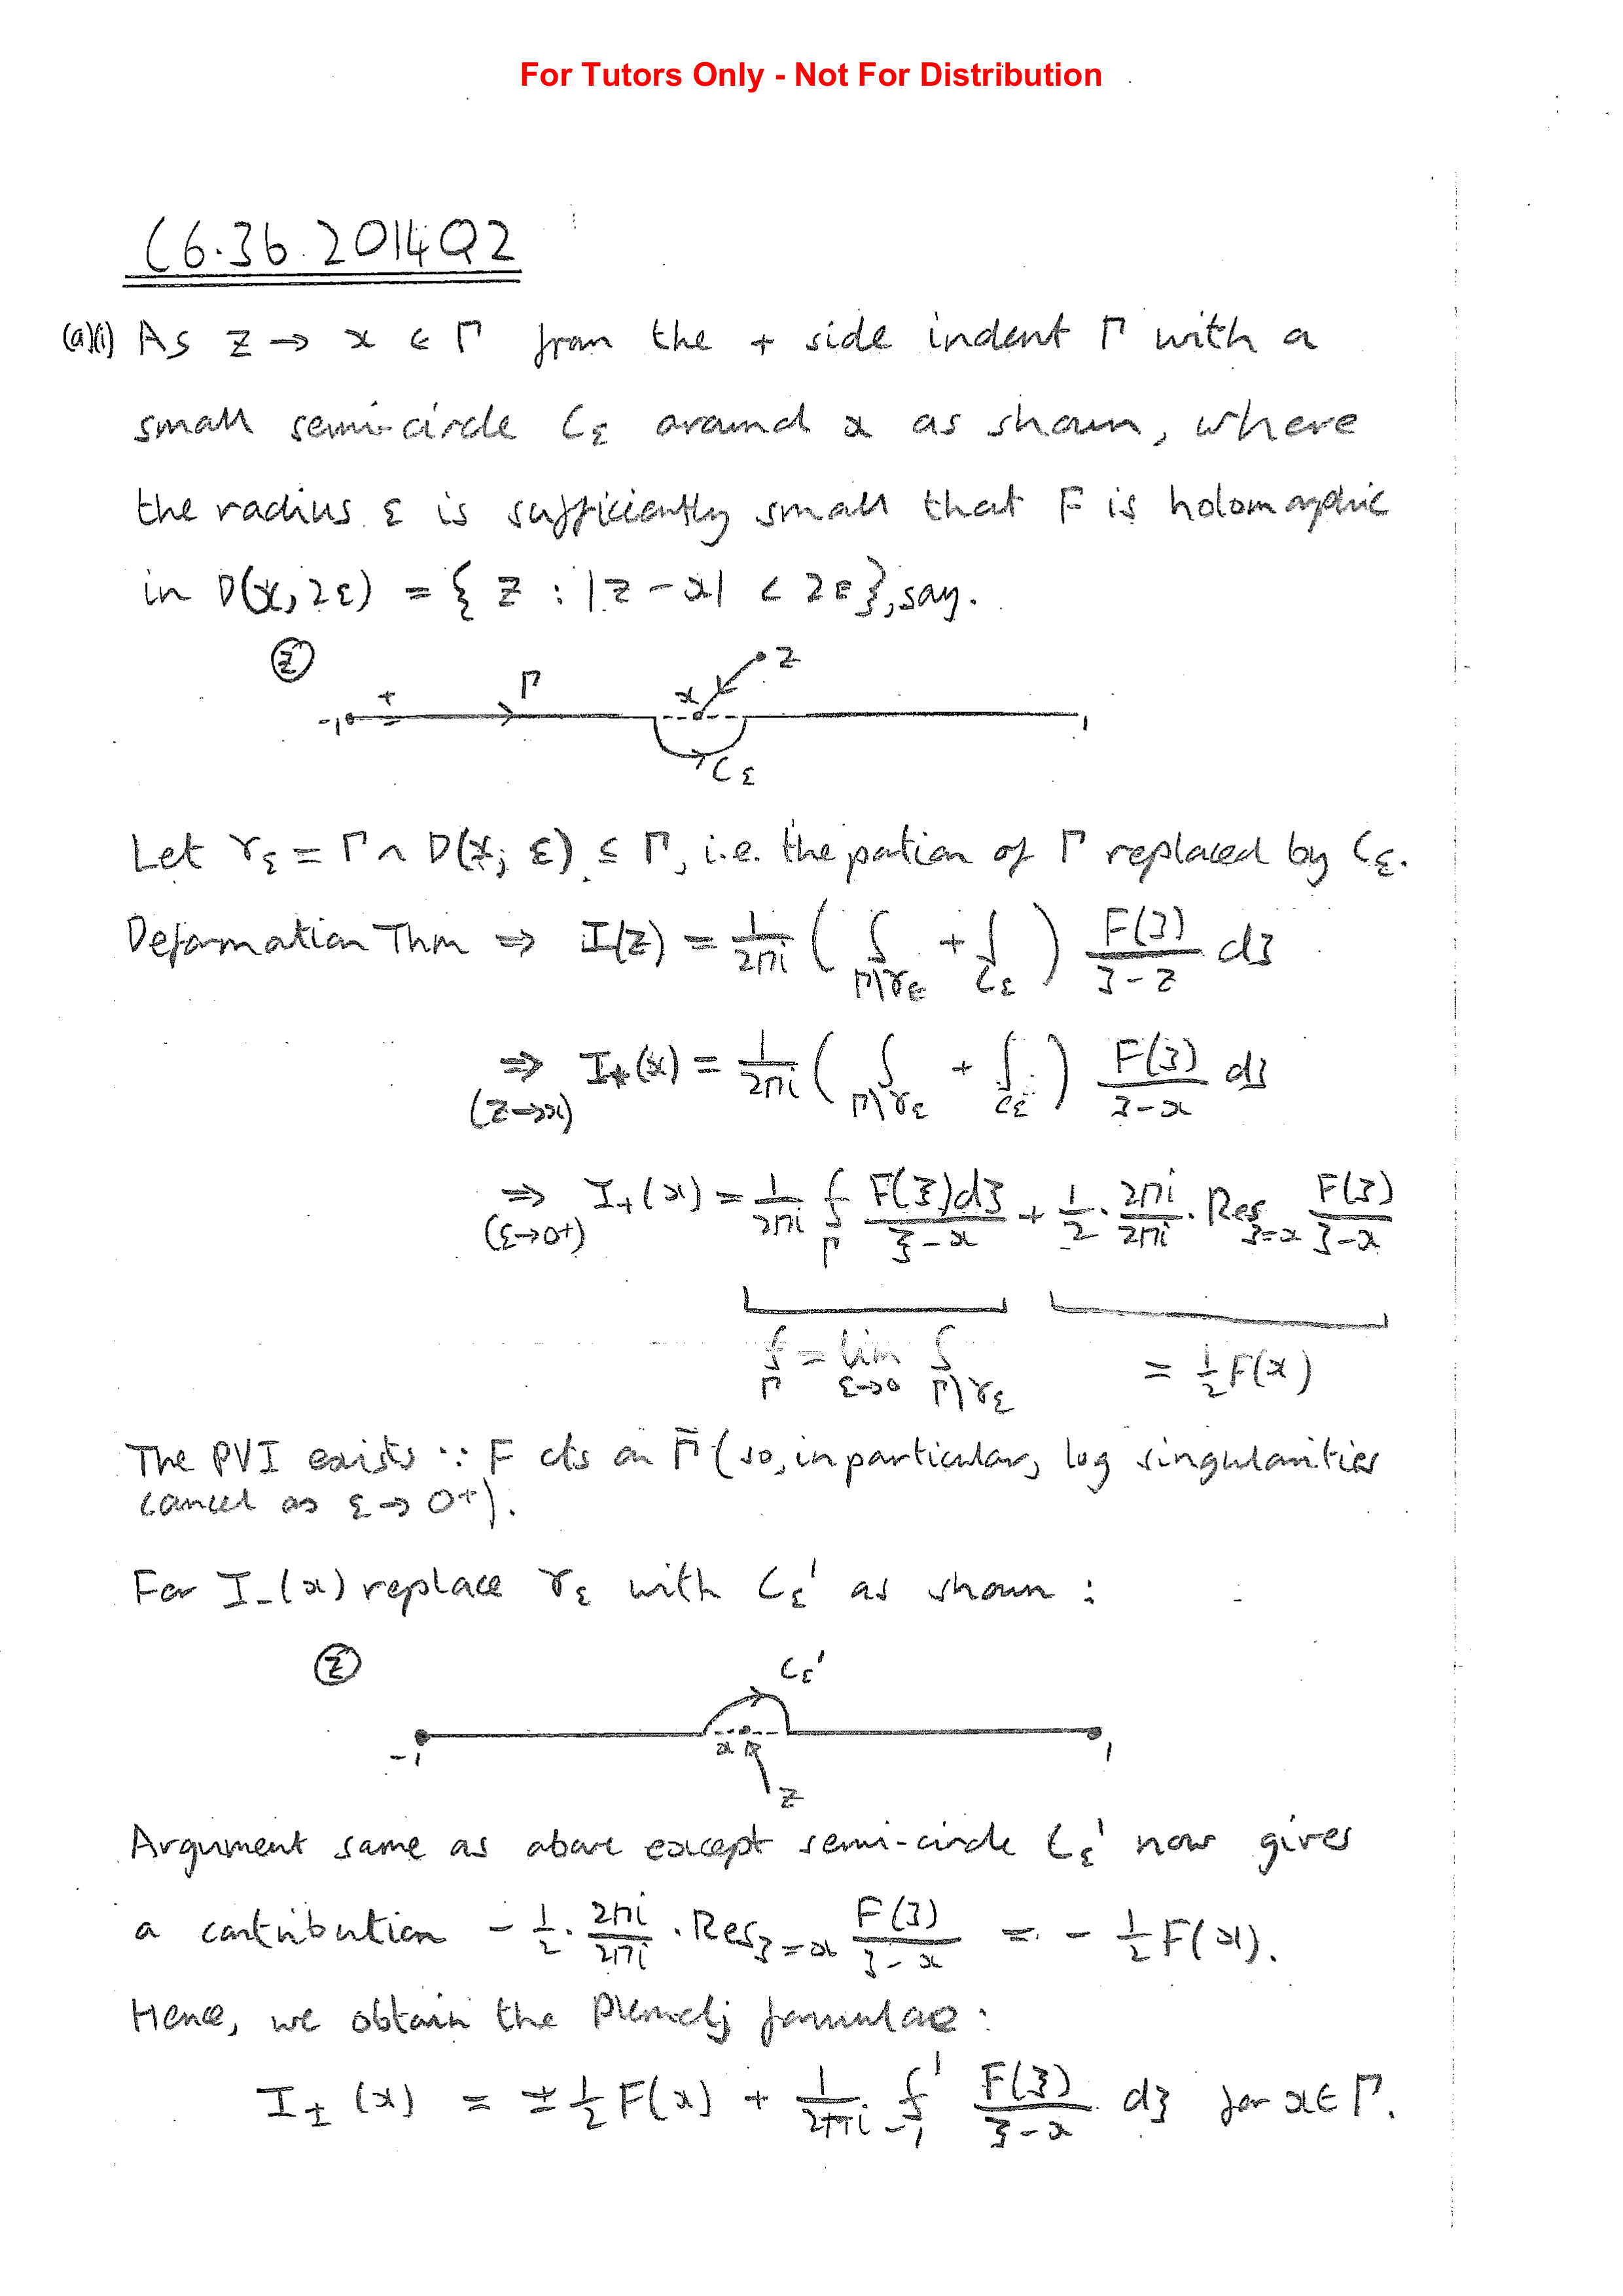 For Tutors Only - Not For Distribution
C6.3b.2014Q2
(a)(i) As z → x ∈ Γ from the + side indent Γ with a
small semi-circle C_ε around x as shown, where
the radius ε is sufficiently small that F is holomorphic
in D(x, 2ε) = { z : |z - x| < 2ε }, say.
z
z
+ Γ x
-1 - 1
C_ε
Let γ_ε = Γ ∩ D(x; ε) ⊆ Γ, i.e. the portion of Γ replaced by C_ε.
Deformation Thm ⇒ I(z) = 1/2πi ( ∫_{Γ\γ_ε} + ∫_{C_ε} ) F(ζ)/(ζ - z) dζ
⇒ (z→x) I_+(x) = 1/2πi ( ∫_{Γ\γ_ε} + ∫_{C_ε} ) F(ζ)/(ζ - x) dζ
⇒ (ε→0+) I_+(x) = 1/2πi ⨍_Γ F(ξ)dξ/(ξ - x) + 1/2 · 2πi/2πi · Res_{ζ=x} F(ζ)/(ζ - x)
⨍_Γ = lim_{ε→0} ∫_{Γ\γ_ε} = 1/2 F(x)
The PVI exists ∵ F cts on Γ̄ (so, in particular, log singularities
cancel as ε → 0+).
For I_-(x) replace γ_ε with C_ε' as shown :
z
C_ε'
-1 x 1
z
Argument same as above except semi-circle C_ε' now gives
a contribution - 1/2 · 2πi/2πi · Res_{ζ=x} F(ζ)/(ζ - x) = - 1/2 F(x).
Hence, we obtain the Plemelj formulae :
I_±(x) = ± 1/2 F(x) + 1/2πi ⨍_{-1}^{1} F(ζ)/(ζ - x) dζ for x ∈ Γ.